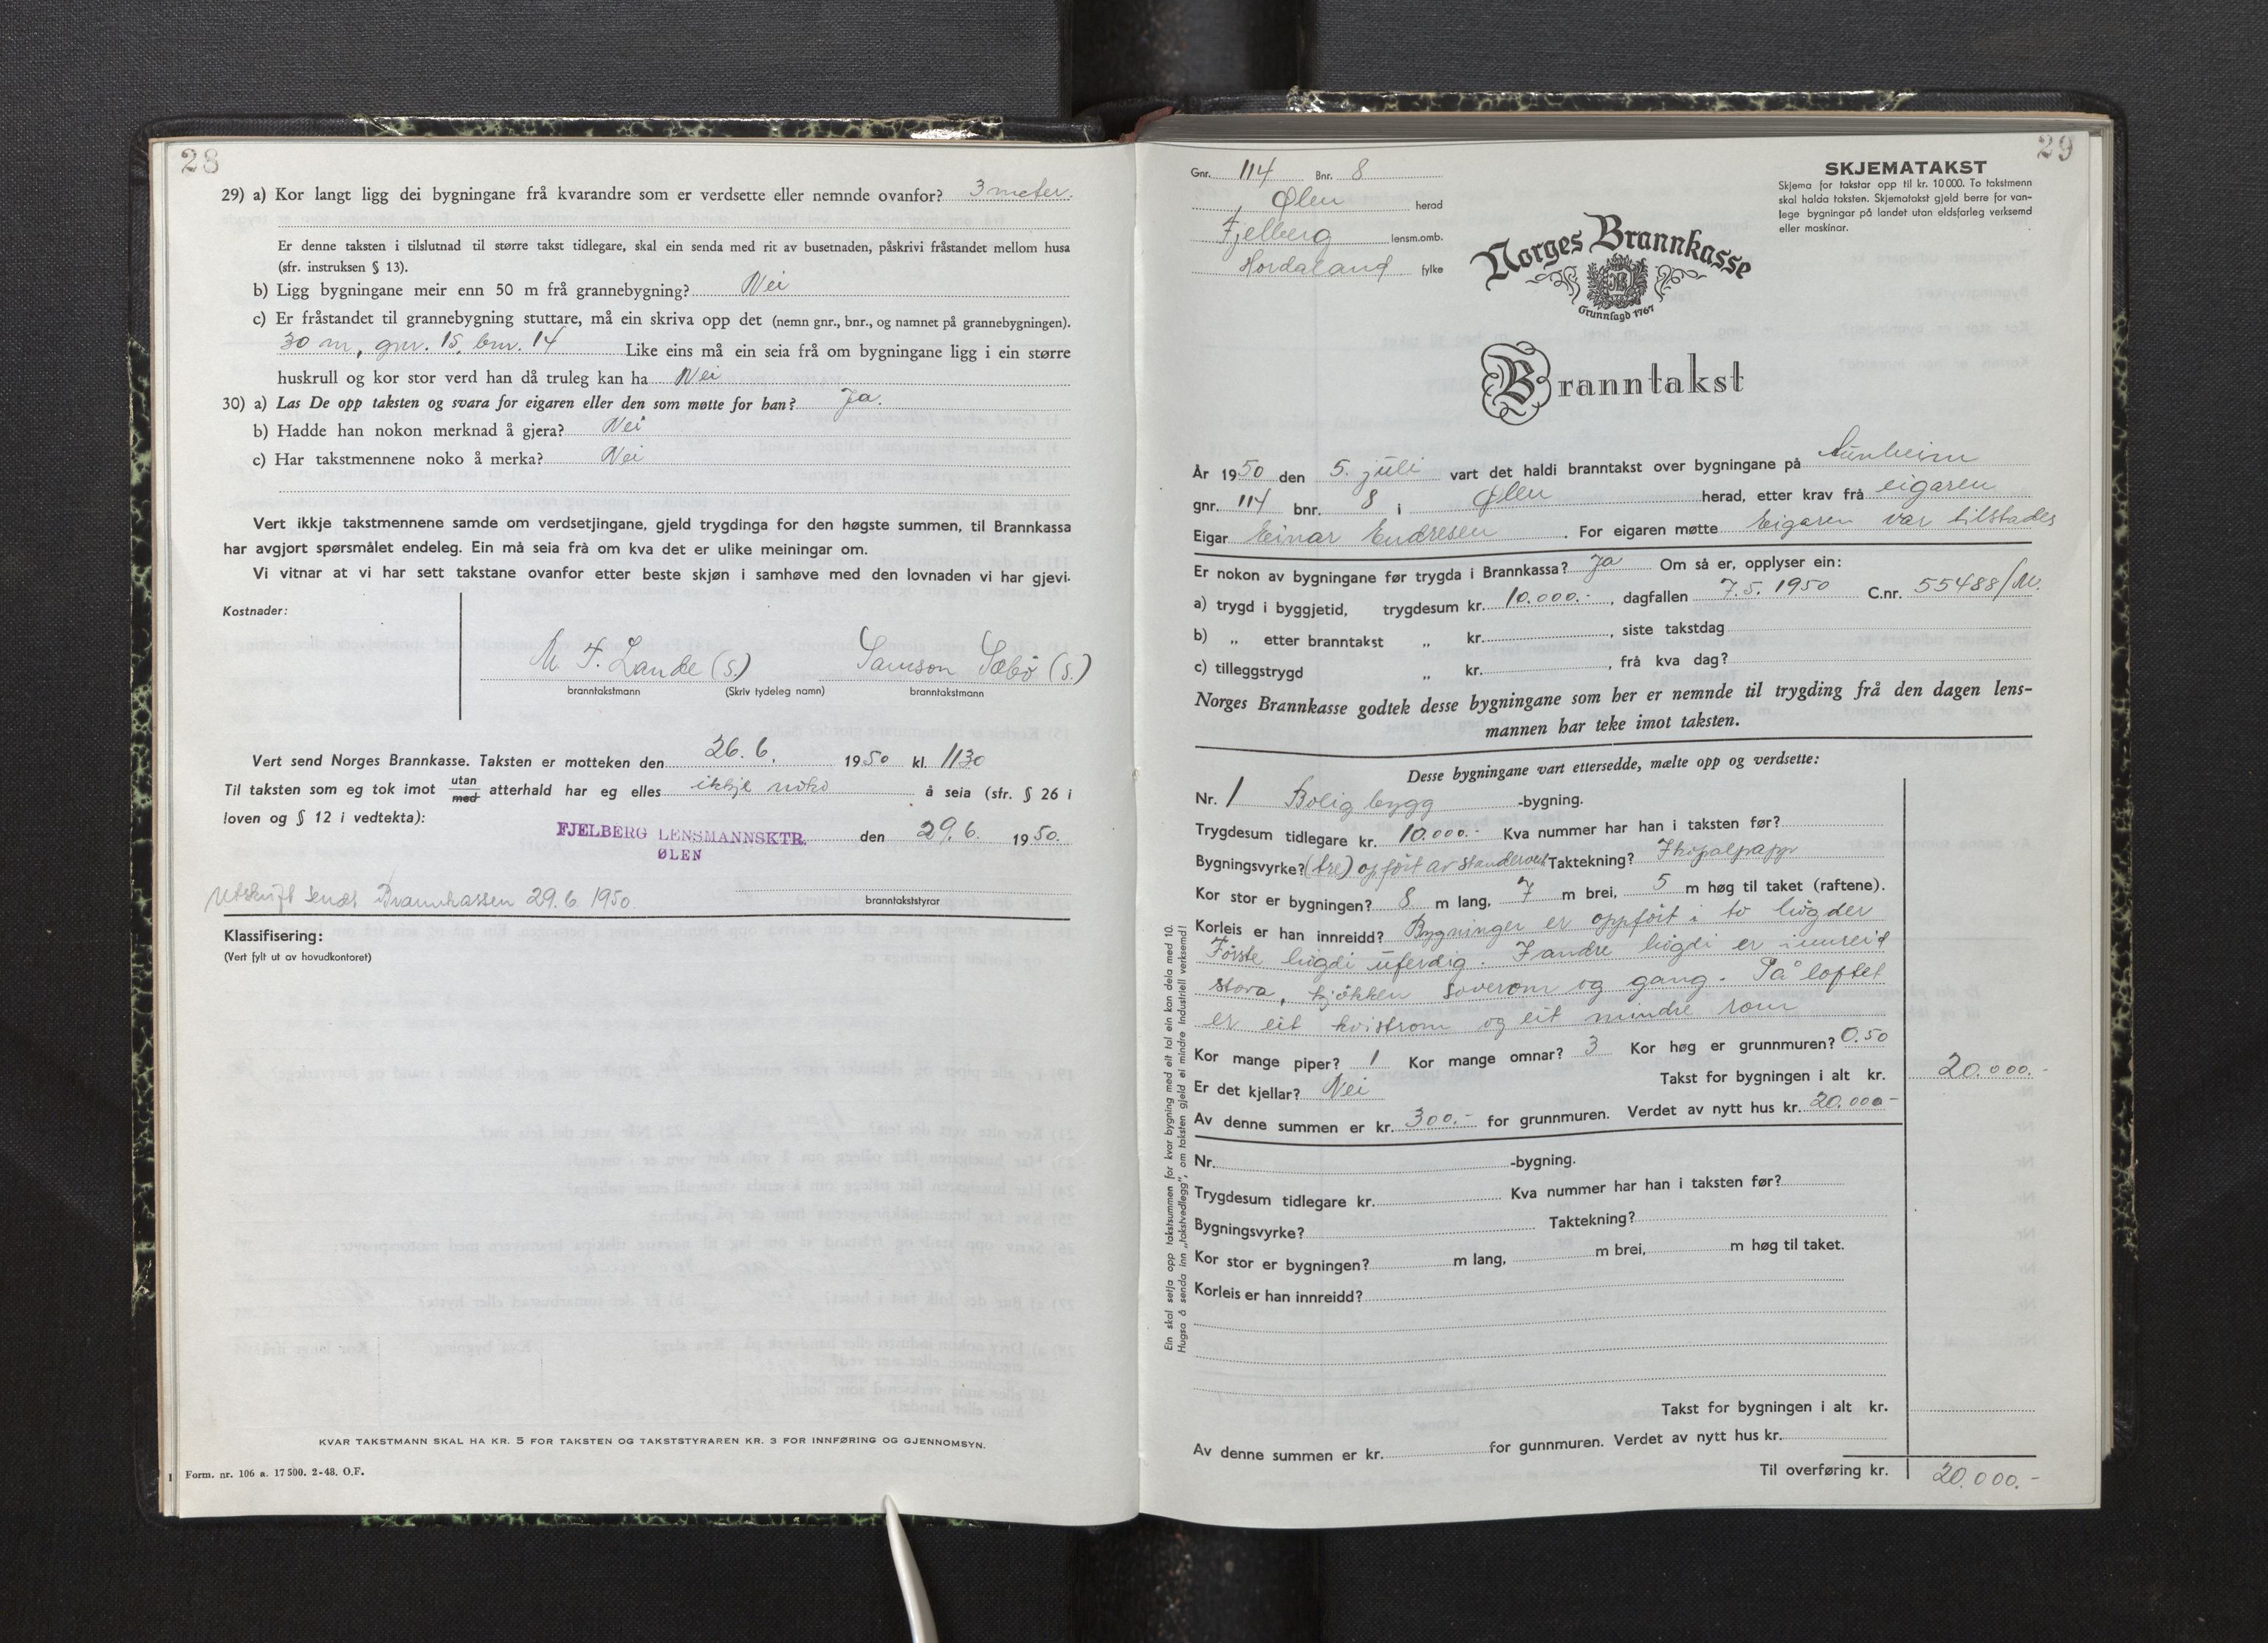 28
29) a) Kor langt ligg dei bygningane frå kvarandre som er verdsette eller nemnde ovanfor? 3 meter.
Er denne taksten i tilslutnad til større takst tidlegare, skal ein senda med rit av busetnaden, påskrivi fråstandet mellom husa
(sfr. instruksen § 13).
b) Ligg bygningane meir enn 50 m frå grannebygning? Nei
c) Er fråstandet til grannebygning stuttare, må ein skriva opp det (nemn gnr., bnr., og namnet på grannebygningen).
30 m, gnr. 15, bnr. 14 Like eins må ein seia frå om bygningane ligg i ein større
huskrull og kor stor verd han då truleg kan ha Nei
30) a) Las De opp taksten og svara for eigaren eller den som møtte for han? Ja.
b) Hadde han nokon merknad å gjera? Nei
c) Har takstmennene noko å merka? Nei
Vert ikkje takstmennene samde om verdsetjingane, gjeld trygdinga for den høgste summen, til Brannkassa
har avgjort spørsmålet endeleg. Ein må seia frå om kva det er ulike meiningar om.
Vi vitnar at vi har sett takstane ovanfor etter beste skjøn i samhøve med den lovnaden vi har gjevi.
Kostnader:
M. T. Lande (s.) Samson Sæbø (s.)
branntakstmann (Skriv tydeleg namn) branntakstmann
Vert send Norges Brannkasse. Taksten er motteken den 26. 6. 1950 kl. 1130
Til taksten som eg tok imot utan med atterhald har eg elles ikkje noko å seia (sfr. § 26 i
loven og § 12 i vedtekta):
FJELBERG LENSMANNSKTR. den 29. 6. 1950.
ØLEN
Utskrift sendt Brannkassen 29. 6. 1950.
branntakststyrar
Klassifisering:
(Vert fylt ut av hovudkontoret)
KVAR TAKSTMANN SKAL HA KR. 5 FOR TAKSTEN OG TAKSTSTYRAREN KR. 3 FOR INNFØRING OG GJENNOMSYN.
1 Form. nr. 106 a. 17 500. 2-48. O.F.
29
Gnr. 114 Bnr. 8
Ølen herad
Fjelberg lensm.omb.
Hordaland fylke
SKJEMATAKST
Skjema for takstar opp til kr. 10 000. To takstmenn
skal halda taksten. Skjematakst gjeld berre for van-
lege bygningar på landet utan eldsfarleg verksemd
eller maskinar.
Norges Brannkasse
Grunnlagd 1767
Branntakst
År 1950 den 5. juli vart det haldi branntakst over bygningane på Tunheim
gnr. 114 bnr. 8 i Ølen herad, etter krav frå eigaren
Eigar Einar Endresen. For eigaren møtte Eigaren var tilstades
Er nokon av bygningane før trygda i Brannkassa? Ja Om så er, opplyser ein:
a) trygd i byggjetid, trygdesum kr. 10.000.-, dagfallen 7. 5. 1950 C.nr. 55488/M.
b) „ etter branntakst „ kr. , siste takstdag
c) tilleggstrygd „ kr. , frå kva dag?
Norges Brannkasse godtek desse bygningane som her er nemnde til trygding frå den dagen lens-
mannen har teke imot taksten.
Desse bygningane vart ettersedde, mælte opp og verdsette:
Nr. 1 Bolig bygg -bygning.
Trygdesum tidlegare kr. 10.000.- Kva nummer har han i taksten før?
Bygningsvyrke? (tre) oppført av standerverk Taktekning?
Kor stor er bygningen? 8 m lang, 7 m brei, 5 m høg til taket (raftene).
Korleis er han innreidd? Bygninger er oppført i to høgder
Første høgdi uferdig. I andre høgdi er innreid
stova, kjøkken soverom og gang. På loftet
er eit kvistrom og eit mindre rom
Kor mange piper? 1 Kor mange omnar? 3 Kor høg er grunnmuren? 0.50
Er det kjellar? Nei Takst for bygningen i alt kr. 20.000.-
Av denne summen er kr. 300.- for grunnmuren. Verdet av nytt hus kr. 20.000-
Nr. -bygning.
Trygdesum tidlegare kr. Kva nummer har han i taksten før?
Bygningsvyrke? Taktekning?
Kor stor er bygningen? m lang, m brei, m høg til taket.
Korleis er han innreidd?
Takst for bygningen i alt kr.
Av denne summen er kr. for gunnmuren. Verdet av nytt hus kr.
Til overføring kr. 20.000.-
Ein skal setja opp takstsummen for kvar bygning med eit tal ein kan dela med 10.
Hugsa å senda inn „takstvedlegg", om taksten gjeld ei mindre industriell verksemd!